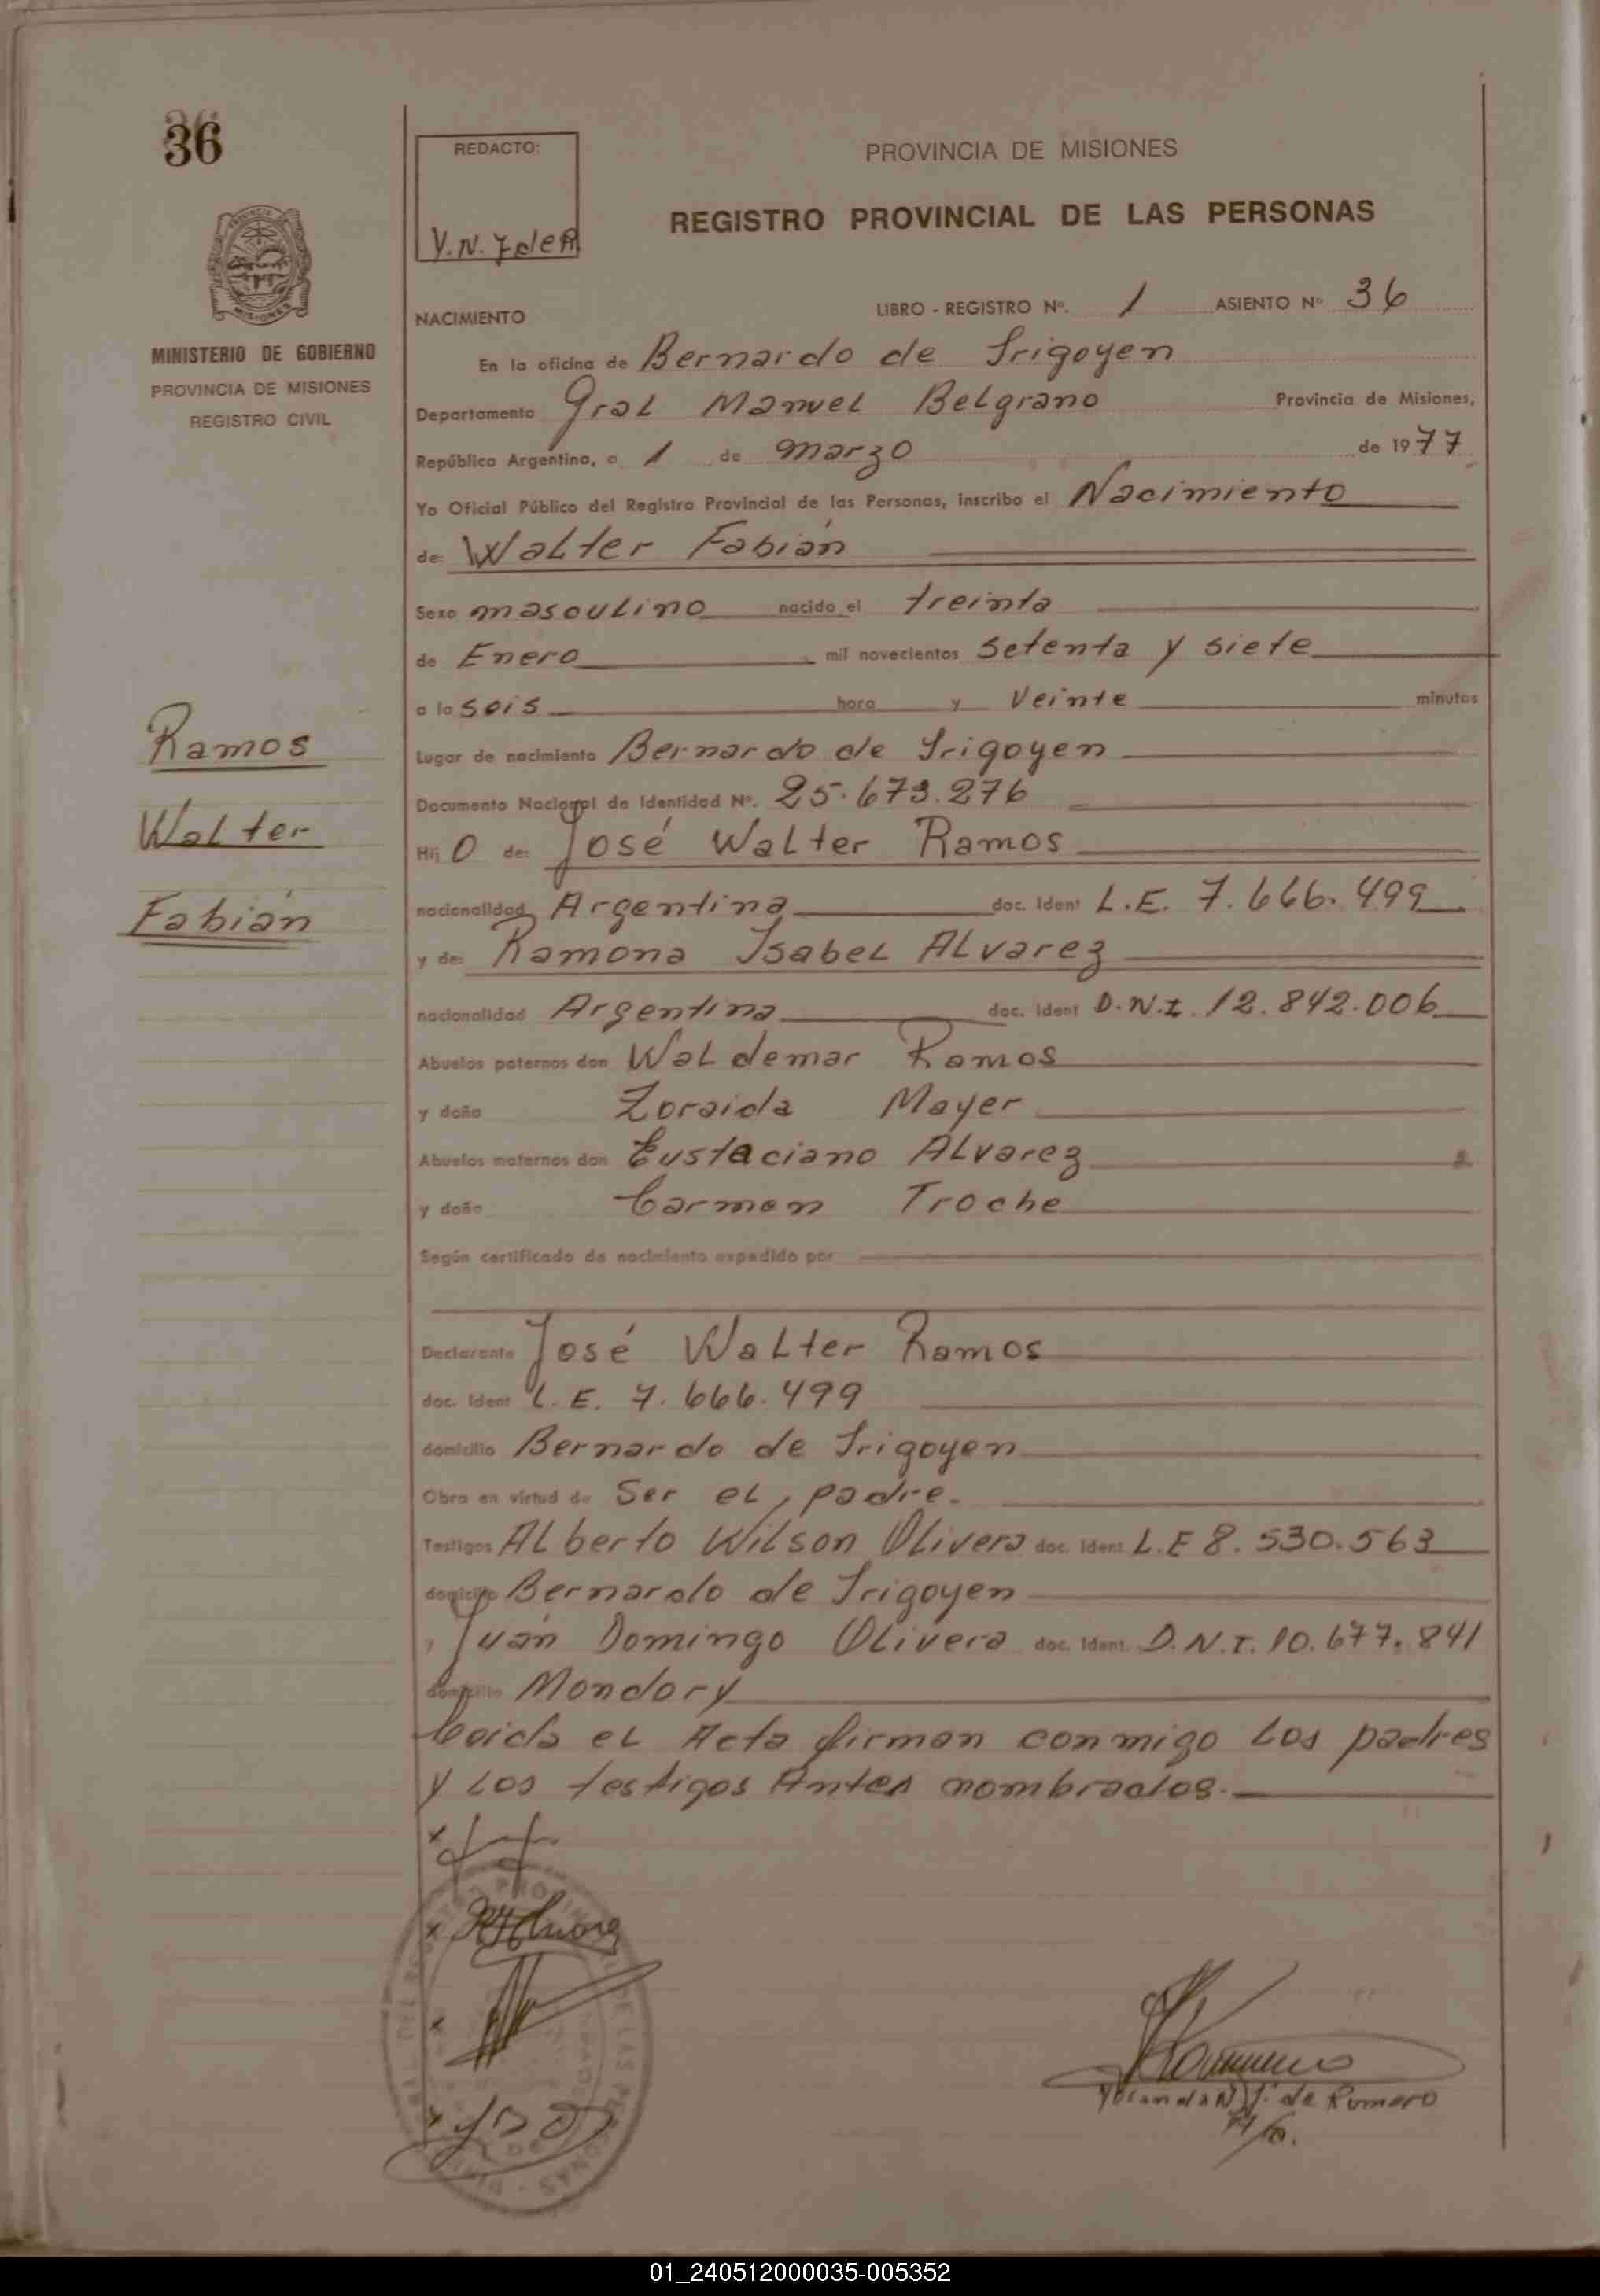 36
REDACTO:
Y.N.J de R
PROVINCIA DE MISIONES
REGISTRO PROVINCIAL DE LAS PERSONAS
MINISTERIO DE GOBIERNO
PROVINCIA DE MISIONES
REGISTRO CIVIL
Ramos
Walter
Fabián
NACIMIENTO LIBRO - REGISTRO Nº. 1 ASIENTO Nº 36
En la oficina de Bernardo de Irigoyen
Departamento Gral Manuel Belgrano Provincia de Misiones,
República Argentina, a 1 de marzo de 1977
Yo Oficial Público del Registro Provincial de las Personas, inscribo el Nacimiento
de: Walter Fabián
Sexo masculino nacido el treinta
de Enero mil novecientos setenta y siete
a la seis hora y Veinte minutos
Lugar de nacimiento Bernardo de Irigoyen
Documento Nacional de Identidad Nº. 25.673.276
Hij O de: José Walter Ramos
nacionalidad Argentina doc. Ident L.E. 7.666.499
y de: Ramona Isabel Alvarez
nacionalidad Argentina doc. Ident D.N.I. 12.842.006
Abuelos paternos don Waldemar Ramos
y doña Zoraida Mayer
Abuelos maternos don Eustaciano Alvarez
y doña Carmen Troche
Según certificado de nacimiento expedido por
Declarante José Walter Ramos
doc. Ident L.E. 7.666.499
domicilio Bernardo de Irigoyen
Obra en virtud de Ser el padre.
Testigos Alberto Wilson Olivera doc. Ident. L.E 8.530.563
domicilio Bernardo de Irigoyen
y Juán Domingo Olivera doc. Ident. D.N.I. 10.677.841
domicilio Mondory
Leida el Acta firman conmigo los padres
y los testigos Antes nombrados.
Yolanda N. J. de Romero
01_240512000035-005352